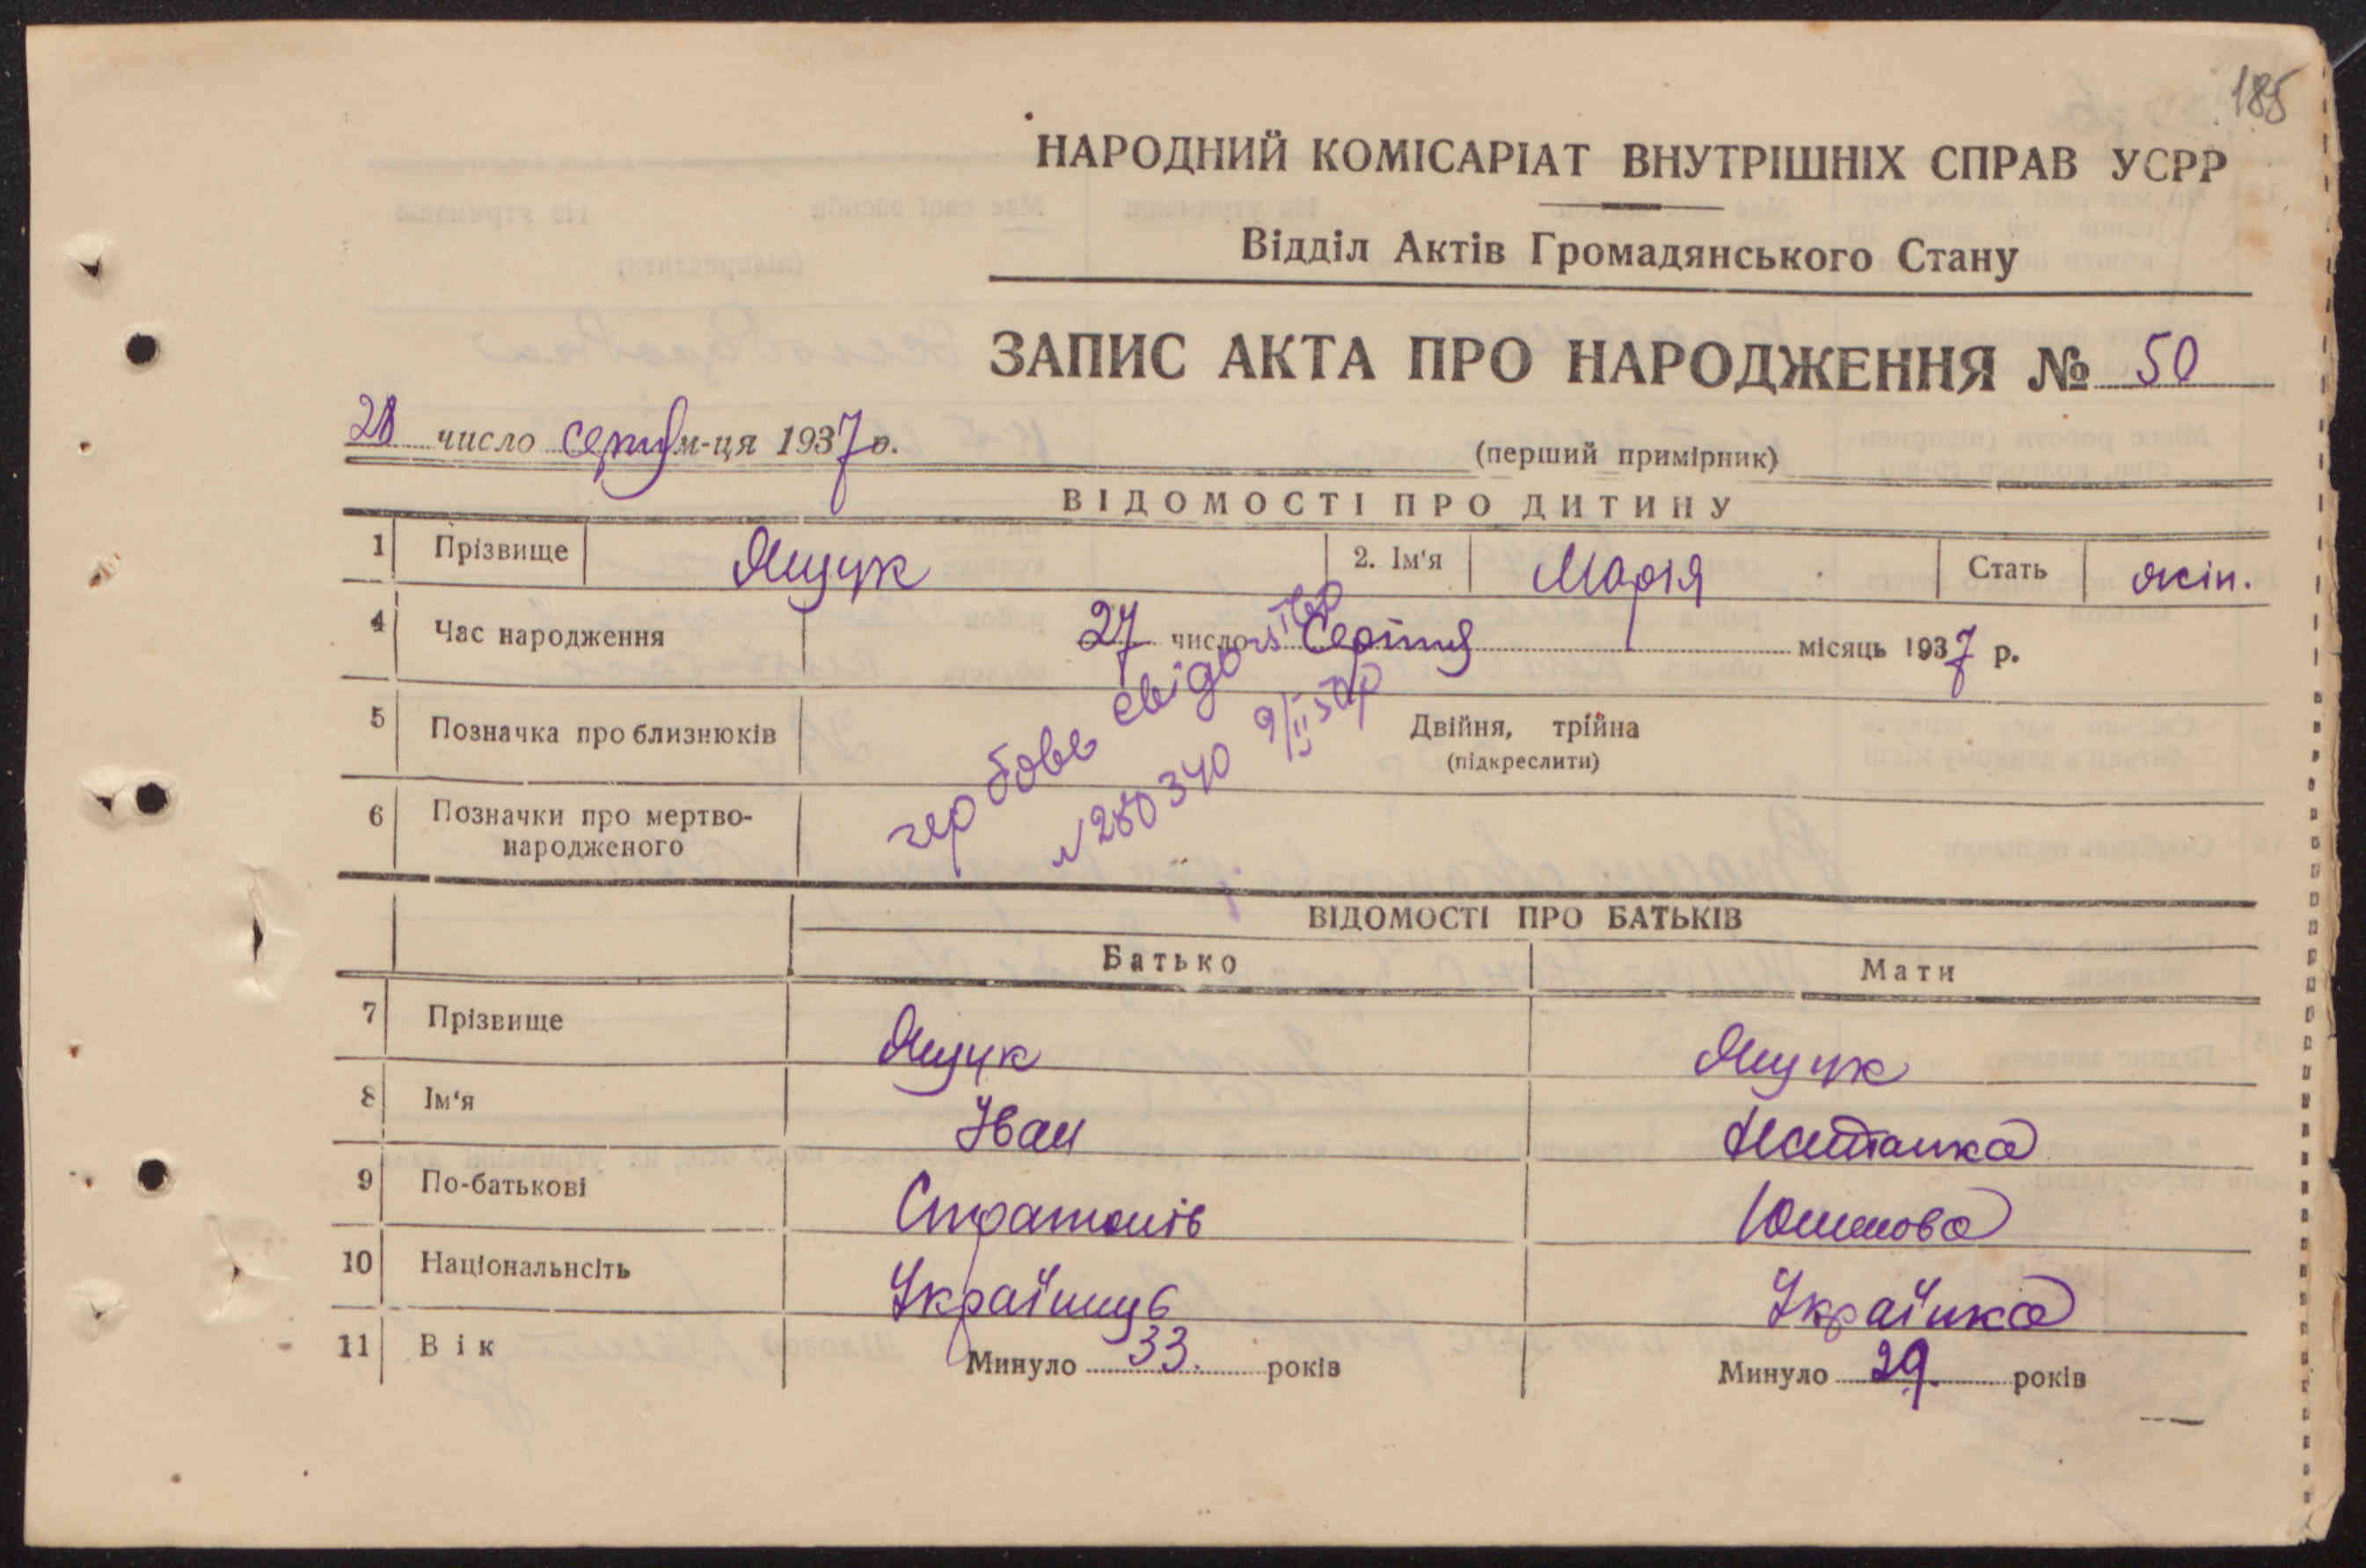 185
НАРОДНИЙ КОМІСАРІАТ ВНУТРІШНІХ СПРАВ УСРР
Відділ Актів Громадянського Стану
ЗАПИС АКТА ПРО НАРОДЖЕННЯ № 50
28 число серпня м-ця 1937 р.
(перший примірник)
ВІДОМОСТІ ПРО ДИТИНУ
1 Прізвище Ящук 2. Ім'я Марія Стать жін.
4 Час народження 27 число Серпня місяць 1937 р.
5 Позначка про близнюків Двійня, трійна
(підкреслити)
6 Позначки про мертво-
народженого
гербове свідоцтво
№ 280340 9/II 50р
ВІДОМОСТІ ПРО БАТЬКІВ
Батько Мати
7 Прізвище Ящук Ящук
8 Ім'я Іван Наталка
9 По-батькові Стратонів
10 Національнсіть Українець Українка
11 Вік Минуло 33. років Минуло 29. років